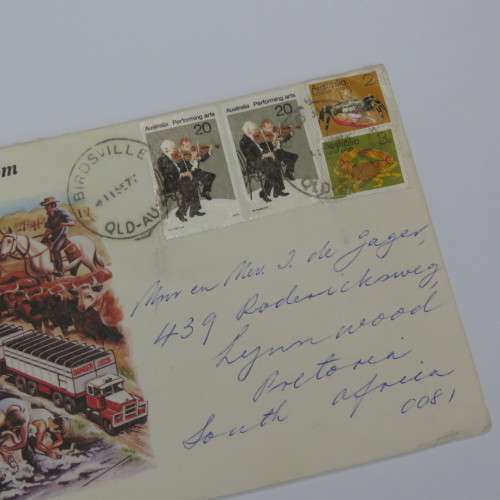 om
Australia Performing arts
20
Australia Performing arts
20
Australia
2c
Australia
BIRDSVILLE
QLD-AUST
Mnr en Mev. J. de Jager,
439 Rodericksweg,
Lynnwood
Pretoria
South Africa
0081